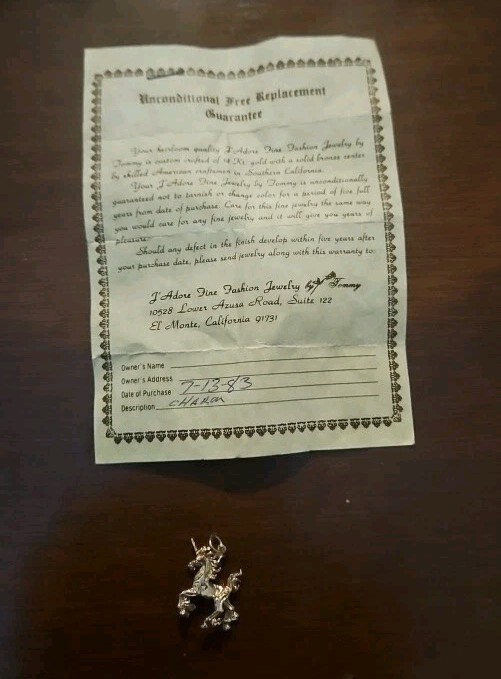 Unconditional Free Replacement
Guarantee
Your heirloom quality J'Adore Fine Fashion Jewelry by
Tommy is custom crafted of 14 Kt. gold with a solid bronze center
by skilled American craftsmen in Southern California.
Your J'Adore Fine Jewelry by Tommy is unconditionally
guaranteed not to tarnish or change color for a period of five full
years from date of purchase. Care for this fine jewelry the same way
you would care for any fine jewelry and it will give you years of
pleasure.
Should any defect in the finish develop within five years after
your purchase date, please send jewelry along with this warranty to:
J'Adore Fine Fashion Jewelry by Tommy
10528 Lower Azusa Road, Suite 122
El Monte, California 91731
Owner's Name
Owner's Address
Date of Purchase 7-13-83
Description CHARM